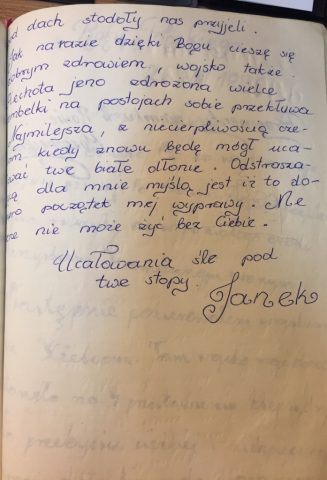 d dach stodoły nas przyjeli.
ak narazie dzięki Bogu cieszę się
obrym zdrowiem, wojsko także.
iechota jeno zdrożona wielce
ąbelki na postojach sobie przekłuwa
Najmilejsza, z niecierpliwością cze-
m kiedy znowu będę mógł uca-
wać twe białe dłonie. Odstrasza-
cą dla mnie myślą jest iż to do-
ero początek mej wyprawy. Me
ne nie może żyć bez Ciebie.
Ucałowania śle pod
twe stopy.
Janek